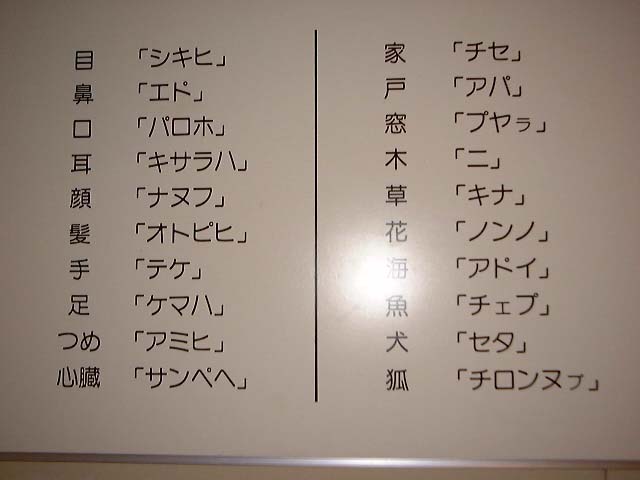 目 「シキヒ」
鼻 「エド」
口 「パロホ」
耳 「キサラハ」
顔 「ナヌフ」
髪 「オトピヒ」
手 「テケ」
足 「ケマハ」
つめ 「アミヒ」
心臓 「サンペヘ」
家 「チセ」
戸 「アパ」
窓 「プヤㇻ」
木 「ニ」
草 「キナ」
花 「ノンノ」
海 「アドイ」
魚 「チェプ」
犬 「セタ」
狐 「チロンヌㇷ゚」